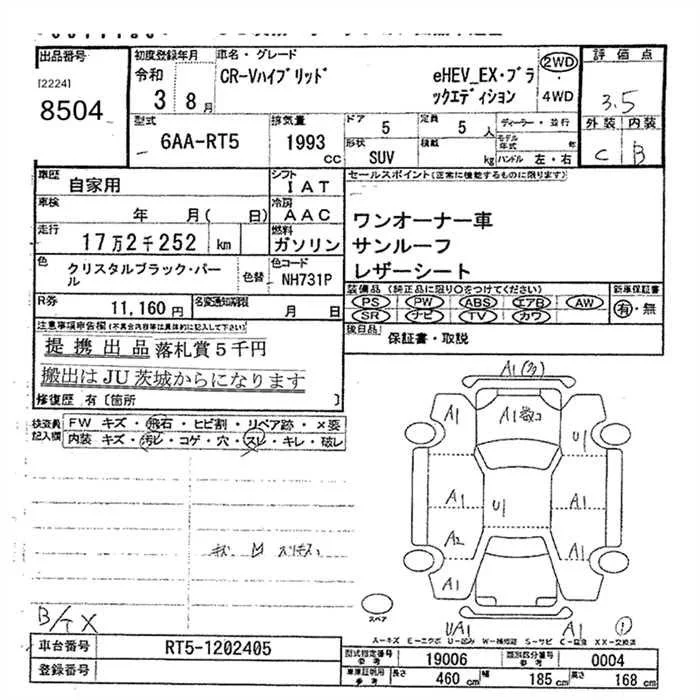 出品番号
[2224]
8504
初度登録年月
令和
3 8月
車名・グレード
CR-Vハイブリッド
eHEV_EX・ブラ
ックエディション
2WD
4WD
評価点
3.5
外装 内装
C B
型式
6AA-RT5
排気量
1993
cc
ドア
5
定員
5
人
形状
SUV
積載
kg
ディーラー・並行
モデル
年式
年
ハンドル 左・右
車歴
自家用
シフト
IAT
車検
年 月( 日)
冷房
AAC
走行
17万2千252 km
燃料
ガソリン
色
クリスタルブラック・パー
ル
色替
色コード
NH731P
R券
11,160円
名変通知期限
月 日
セールスポイント(正常に機能するものに限ります)
ワンオーナー車
サンルーフ
レザーシート
装備品(純正品に限り○をつけてください)
PS PW ABS エアB AW
SR ナビ TV カワ
新車保証書
有・無
後日品
保証書・取説
注意事項申告欄(不具合内容等は具体的に記入して下さい)
提携出品 落札賞5千円
搬出はJU茨城からになります
修復歴 有〔箇所 〕
検査員
記入欄
FW キズ・飛石・ヒビ割・リペア跡・×要
内装 キズ・汚レ・コゲ・穴・スレ・キレ・破レ
A1(多)
A1
A1
U1
A1
U1
A1
A2
A1
A1
UA1
A1
スペア
①
A-キズ E-エクボ U-凹み W-補修跡 S-サビ C-腐食 XX-交換済
車台番号
RT5-1202405
登録番号
型式指定番号
参考
19006
類別区分番号
参考
0004
車庫証明用
参考
長さ
460 cm
幅
185 cm
高さ
168 cm